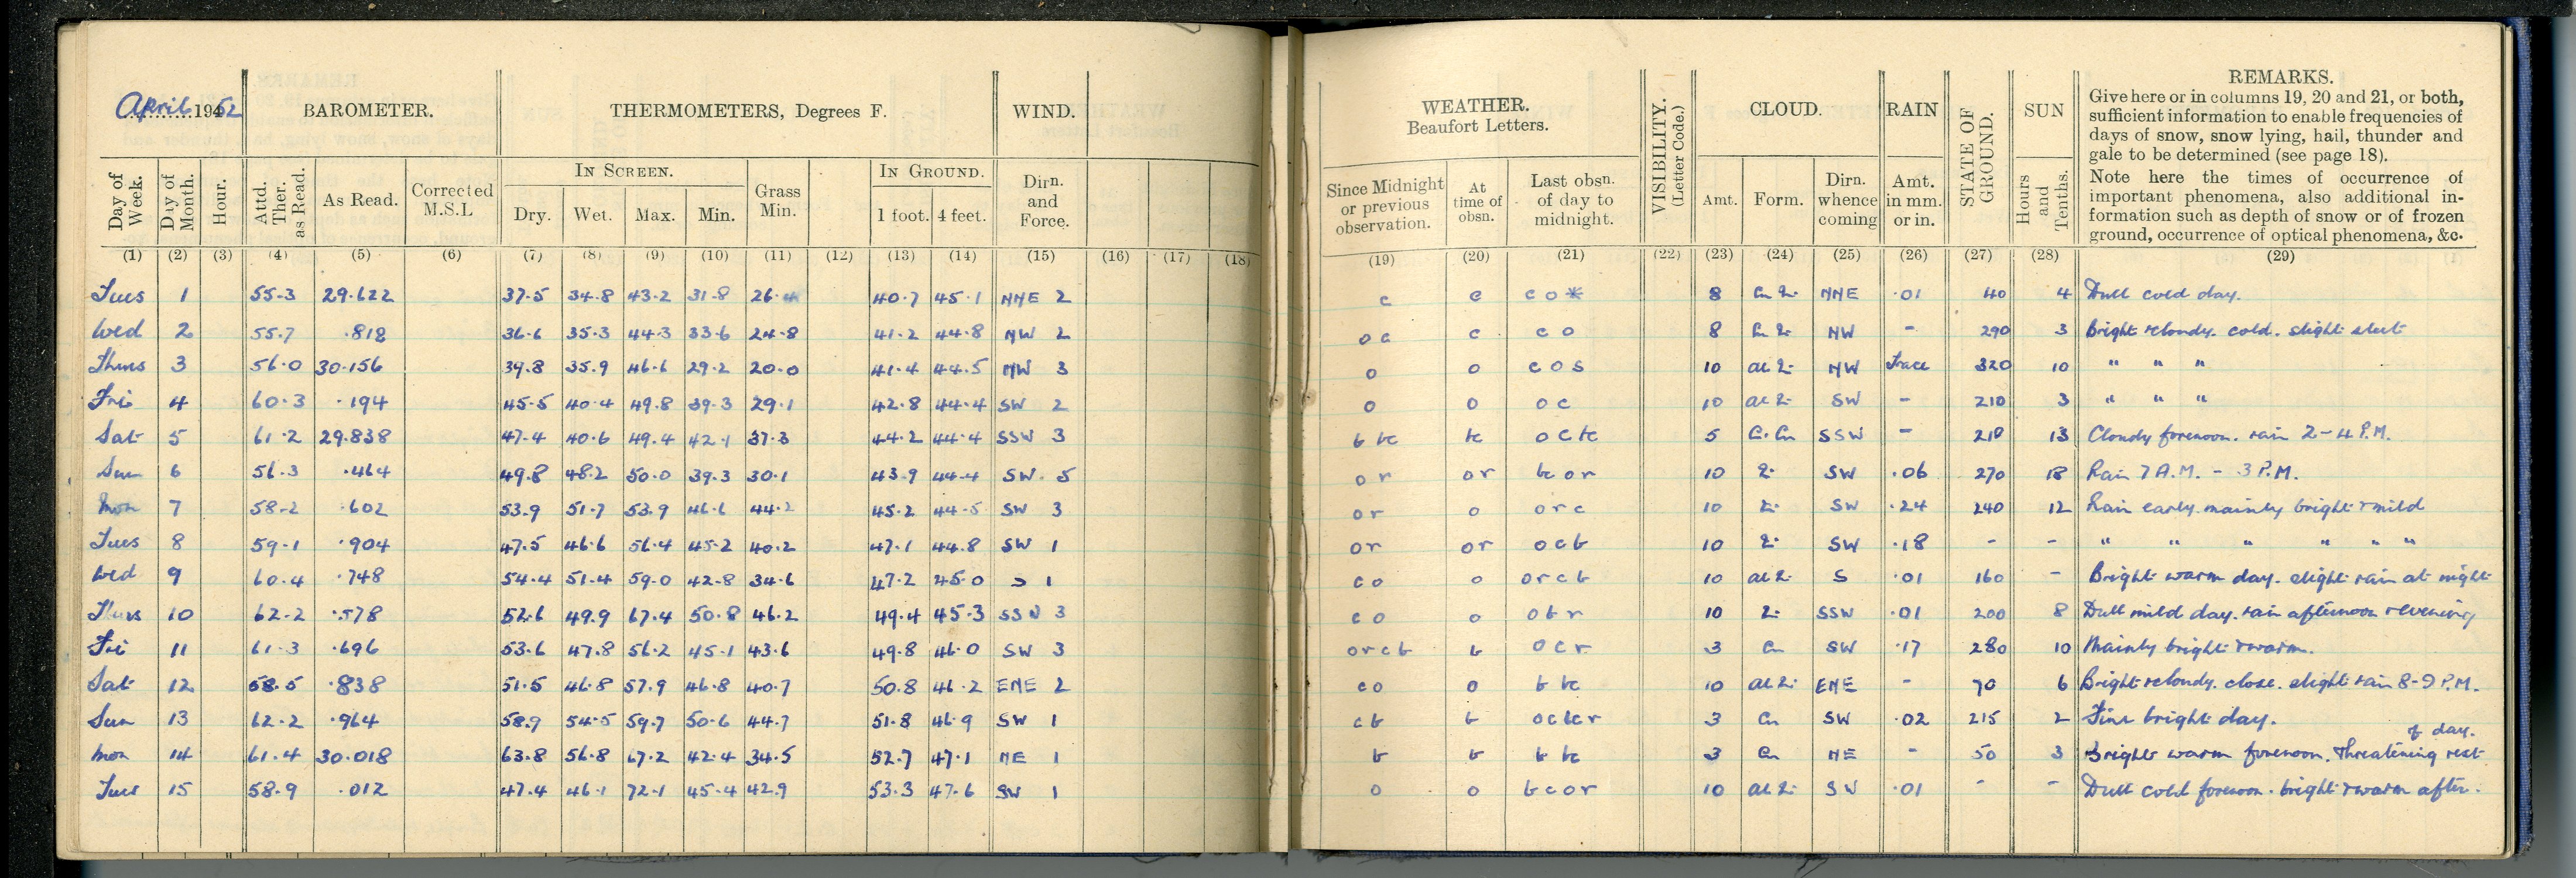 April 1952 BAROMETER. THERMOMETERS, Degrees F. WIND. WEATHER. Beaufort Letters. VISIBILITY. (Letter Code.) CLOUD. RAIN STATE OF GROUND. SUN REMARKS.
Give here or in columns 19, 20 and 21, or both,
sufficient information to enable frequencies of
days of snow, snow lying, hail, thunder and
gale to be determined (see page 18).
Note here the times of occurrence of
important phenomena, also additional in-
formation such as depth of snow or of frozen
ground, occurrence of optical phenomena, &c.
IN SCREEN. IN GROUND.
Day of Week. Day of Month. Hour. Attd. Ther. as Read. As Read. Corrected M.S.L Dry. Wet. Max. Min. Grass Min. 1 foot. 4 feet. Dirn. and Force. Since Midnight or previous observation. At time of obsn. Last obsn. of day to midnight. Amt. Form. Dirn. whence coming Amt. in mm. or in. Hours and Tenths.
(1) (2) (3) (4) (5) (6) (7) (8) (9) (10) (11) (12) (13) (14) (15) (16) (17) (18) (19) (20) (21) (22) (23) (24) (25) (26) (27) (28) (29)
Tues 1 55.3 29.622 37.5 34.8 43.2 31.8 26.4 40.7 45.1 NNE 2 c c c o * 8 NNE .01 40 4 Dull cold day.
Wed 2 55.7 .818 36.6 35.3 44.3 33.6 24.8 41.2 44.8 NW 2 o c c c o 8 NW - 290 3 Bright & cloudy. cold. slight sleet
Thurs 3 56.0 30.156 39.8 35.9 46.6 29.2 20.0 41.4 44.5 NW 3 o o c o s 10 NW Trace 320 10 " " "
Fri 4 60.3 .194 45.5 40.4 49.8 39.3 29.1 42.8 44.4 SW 2 o o o c 10 SW - 210 3 " " "
Sat 5 61.2 29.838 47.4 40.6 49.4 42.1 37.3 44.2 44.4 SSW 3 b bc bc o c bc 5 SSW - 210 13 Cloudy forenoon. rain 2-4 P.M.
Sun 6 56.3 .464 49.8 48.2 50.0 39.3 30.1 43.9 44.4 SW. 5 o r o r bc o r 10 SW .06 270 18 Rain 7 A.M. - 3 P.M.
Mon 7 58.2 .602 53.9 51.7 53.9 46.6 44.2 45.2 44.5 SW 3 o r o o r c 10 SW .24 240 12 Rain early. mainly bright & mild
Tues 8 59.1 .904 47.5 46.6 56.4 45.2 40.2 47.1 44.8 SW 1 o r o r o c b 10 SW .18 - - " " " " " "
Wed 9 60.4 .748 54.4 51.4 59.0 42.8 34.6 47.2 45.0 S 1 c o o o r c b 10 S .01 160 - Bright warm day. slight rain at night
Thurs 10 62.2 .578 52.6 49.9 67.4 50.8 46.2 49.4 45.3 SSW 3 c o o o b r 10 SSW .01 200 8 Dull mild day. rain afternoon & evening
Fri 11 61.3 .696 53.6 47.8 56.2 45.1 43.6 49.8 46.0 SW 3 o r c b b o c r 3 SW .17 280 10 Mainly bright & warm.
Sat 12 58.5 .838 51.5 46.8 57.9 46.8 40.7 50.8 46.2 ENE 2 c o o b bc 10 ENE - 70 6 Bright & cloudy. close. slight rain 8-9 P.M.
Sun 13 62.2 .964 58.9 54.5 59.7 50.6 44.7 51.8 46.9 SW 1 c b b o c bc r 3 SW .02 215 2 Fine bright day.
Mon 14 61.4 30.018 63.8 56.8 67.2 42.4 34.5 52.7 47.1 NE 1 b b b bc 3 NE - 50 3 Bright warm forenoon. Threatening rest of day.
Tues 15 58.9 .012 47.4 46.1 72.1 45.4 42.9 53.3 47.6 SW 1 o o b c o r 10 SW .01 - - Dull cold forenoon. bright & warm after.